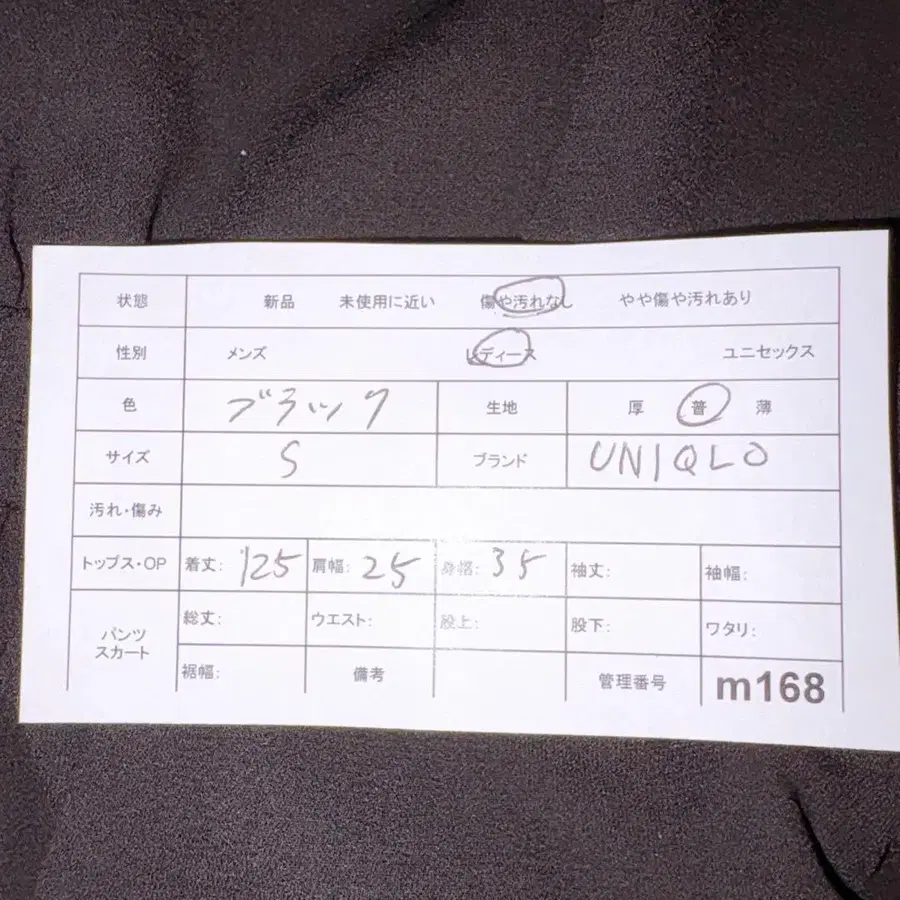 状態 新品 未使用に近い 傷や汚れなし やや傷や汚れあり
性別 メンズ レディース ユニセックス
色 ブラック 生地 厚 普 薄
サイズ S ブランド UNIQLO
汚れ・傷み
トップス・OP 着丈: 125 肩幅: 25 身幅: 35 袖丈: 袖幅:
パンツ スカート 総丈: ウエスト: 股上: 股下: ワタリ:
裾幅: 備考 管理番号 m168